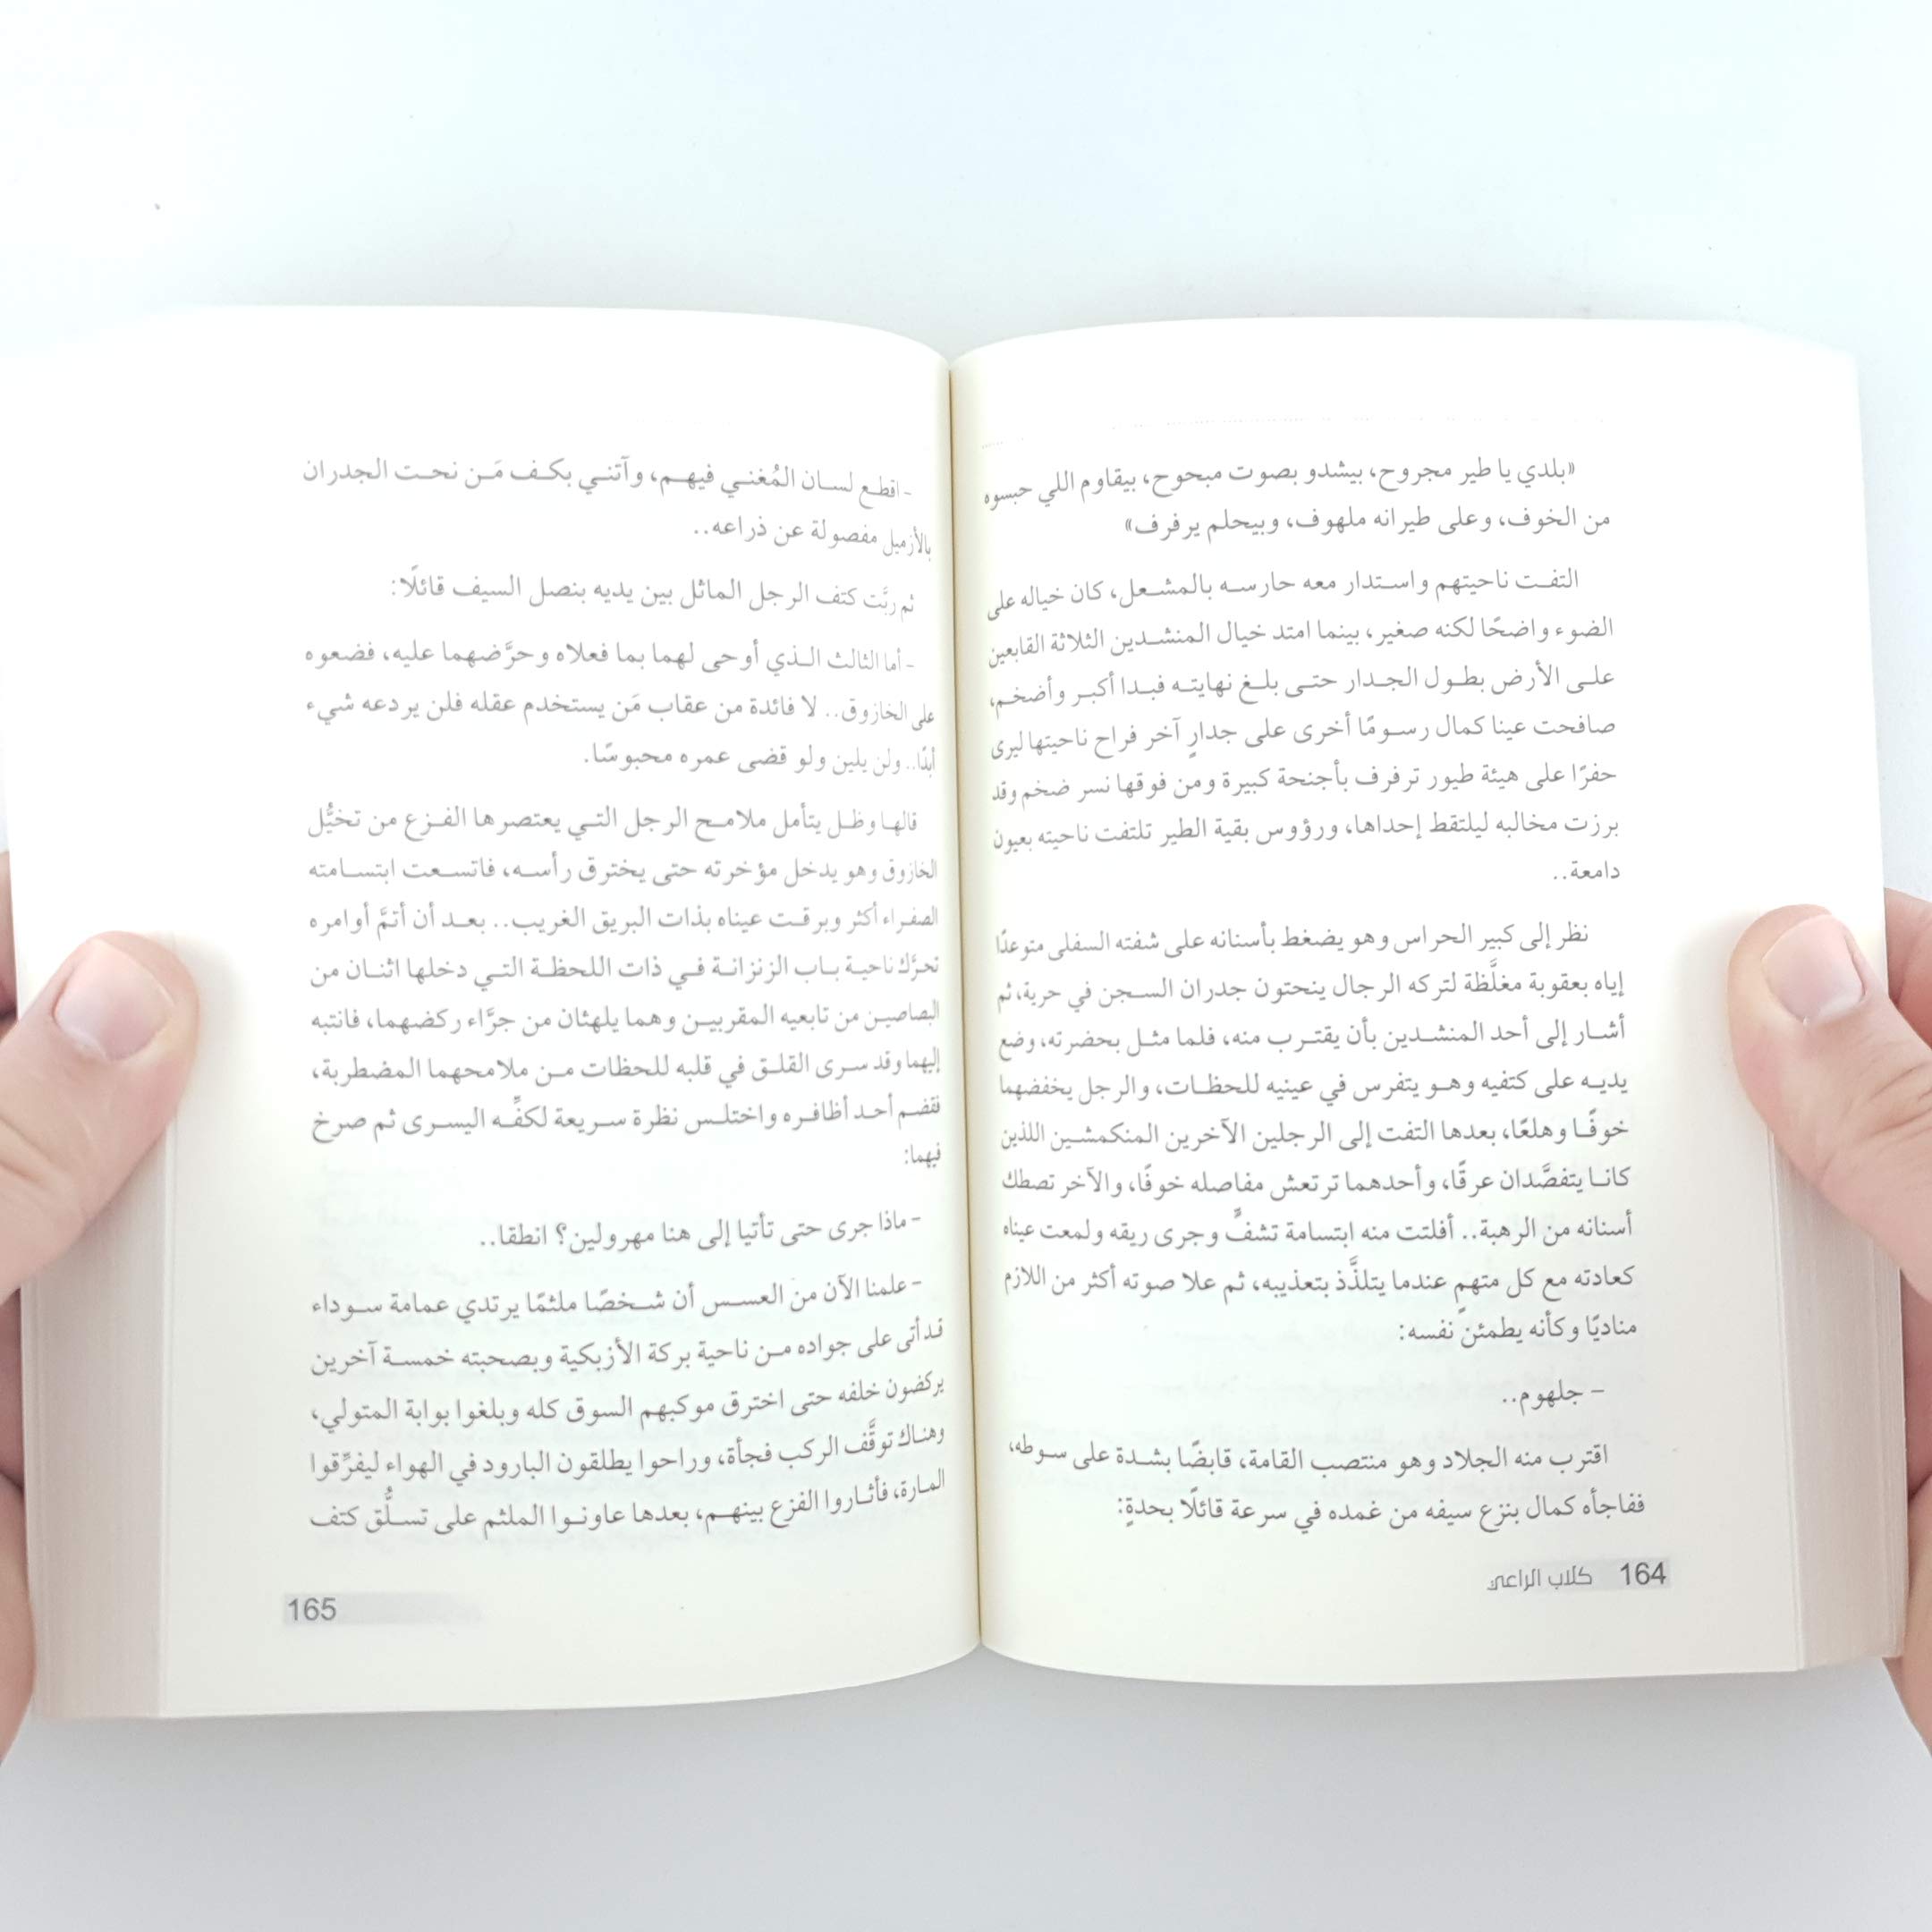 «بلدي يا طير مجروح، بيشدو بصوت مبحوح، بيقاوم اللي حبسوه
من الخوف، وعلى طيرانه ملهوف، وبيحلم يرفرف»
التفت ناحيتهم واستدار معه حارسه بالمشعل، كان خياله على
الضوء واضحًا لكنه صغير، بينما امتد خيال المنشدين الثلاثة القابعين
على الأرض بطول الجدار حتى بلغ نهايته فبدا أكبر وأضخم،
صافحت عينا كمال رسومًا أخرى على جدارٍ آخر فراح ناحيتها ليرى
حفرًا على هيئة طيور ترفرف بأجنحة كبيرة ومن فوقها نسر ضخم وقد
برزت مخالبه ليلتقط إحداها، ورؤوس بقية الطير تلتفت ناحيته بعيون
دامعة..
نظر إلى كبير الحراس وهو يضغط بأسنانه على شفته السفلى متوعدًا
إياه بعقوبة مغلَّظة لتركه الرجال ينحتون جدران السجن في حرية، ثم
أشار إلى أحد المنشدين بأن يقترب منه، فلما مثل بحضرته، وضع
يديه على كتفيه وهو يتفرس في عينيه للحظات، والرجل يخفضهما
خوفًا وهلعًا، بعدها التفت إلى الرجلين الآخرين المنكمشين اللذين
كانا يتفصَّدان عرقًا، وأحدهما ترتعش مفاصله خوفًا، والآخر تصطك
أسنانه من الرهبة.. أفلتت منه ابتسامة تشفٍّ وجرى ريقه ولمعت عيناه
كعادته مع كل متهمٍ عندما يتلذَّذ بتعذيبه، ثم علا صوته أكثر من اللازم
مناديًا وكأنه يطمئن نفسه:
- جلهوم..
اقترب منه الجلاد وهو منتصب القامة، قابضًا بشدة على سوطه،
ففاجأه كمال بنزع سيفه من غمده في سرعة قائلًا بحدةٍ:
164 كلاب الراعي
- اقطع لسان المُغني فيهم، وآتني بكف مَن نحت الجدران
بالأزميل مفصولة عن ذراعه..
ثم ربَّت كتف الرجل الماثل بين يديه بنصل السيف قائلًا:
- أما الثالث الذي أوحى لهما بما فعلاه وحرَّضهما عليه، فضعوه
على الخازوق.. لا فائدة من عقاب مَن يستخدم عقله فلن يردعه شيء
أبدًا.. ولن يلين ولو قضى عمره محبوسًا.
قالها وظل يتأمل ملامح الرجل التي يعتصرها الفزع من تخيُّل
الخازوق وهو يدخل مؤخرته حتى يخترق رأسه، فاتسعت ابتسامته
الصفراء أكثر وبرقت عيناه بذات البريق الغريب.. بعد أن أتمَّ أوامره
تحرَّك ناحية باب الزنزانة في ذات اللحظة التي دخلها اثنان من
البصاصين من تابعيه المقربين وهما يلهثان من جرَّاء ركضهما، فانتبه
إليهما وقد سرى القلق في قلبه للحظات من ملامحهما المضطربة،
فقضم أحد أظافره واختلس نظرة سريعة لكفِّه اليسرى ثم صرخ
فيهما:
- ماذا جرى حتى تأتيا إلى هنا مهرولين؟ انطقا..
- علمنا الآن من العسس أن شخصًا ملثمًا يرتدي عمامة سوداء
قد أتى على جواده من ناحية بركة الأزبكية وبصحبته خمسة آخرين
يركضون خلفه حتى اخترق موكبهم السوق كله وبلغوا بوابة المتولي،
وهناك توقَّف الركب فجأة، وراحوا يطلقون البارود في الهواء ليفرِّقوا
المارة، فأثاروا الفزع بينهم، بعدها عاونوا الملثم على تسلُّق كتف
165